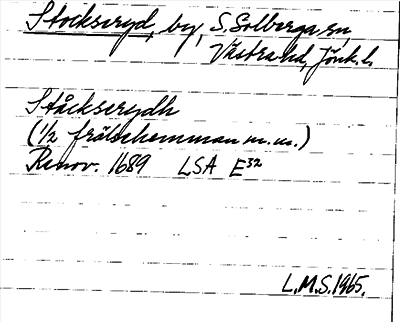 Stockseryd, by, S. Solberga sn,
Västra hd, Jönk. l.
Ståckserydh
(1/2 frälsehemman m.m.)
Renov. 1689 LSA E32
L.M.S. 1965.